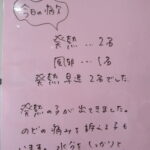 今日の病欠
発熱…2名
風邪…1名
発熱 早退 2名でした。
発熱の子が出てきました。
のどの痛みを訴える子も
います。水分をしっかりと